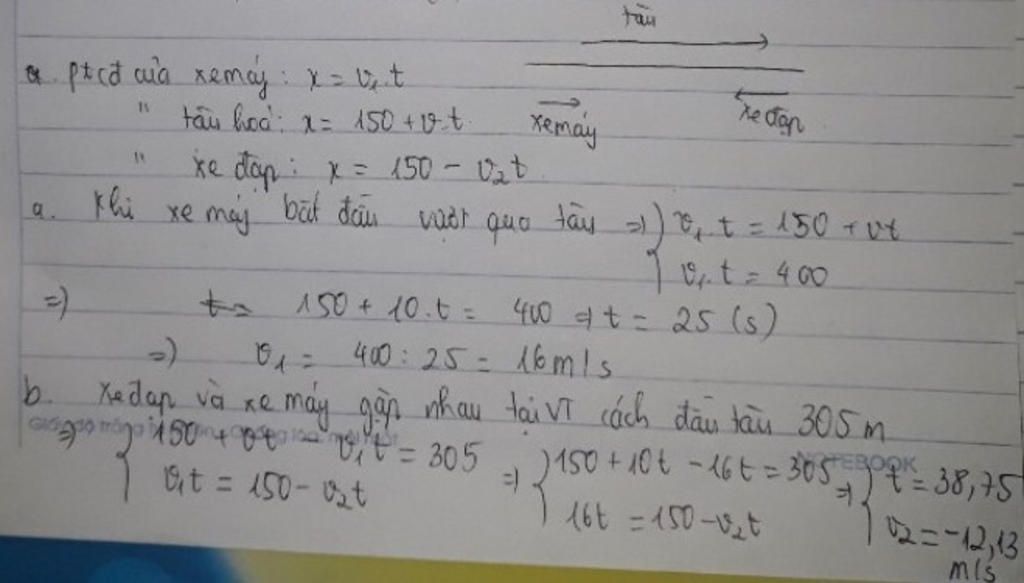 tàu
a. ptcđ của xe máy: x = v₁.t
" tàu hoả: x = 150 + v.t
xe máy
xe đạp
" xe đạp: x = 150 - v₂t
a. Khi xe máy bắt đầu vượt qua tàu => { v₁.t = 150 + vt
v₁.t = 400
=> t = 150 + 10.t = 400 => t = 25 (s)
=> v₁ = 400 : 25 = 16 m/s
b. Xe đạp và xe máy gặp nhau tại VT cách đầu tàu 305 m
=> { 150 + vt - v₁t = 305 => { 150 + 10t - 16t = 305 => { t = 38,75
v₁t = 150 - v₂t
16t = 150 - v₂t
v₂ = -12,13
m/s
NOTEBOOK